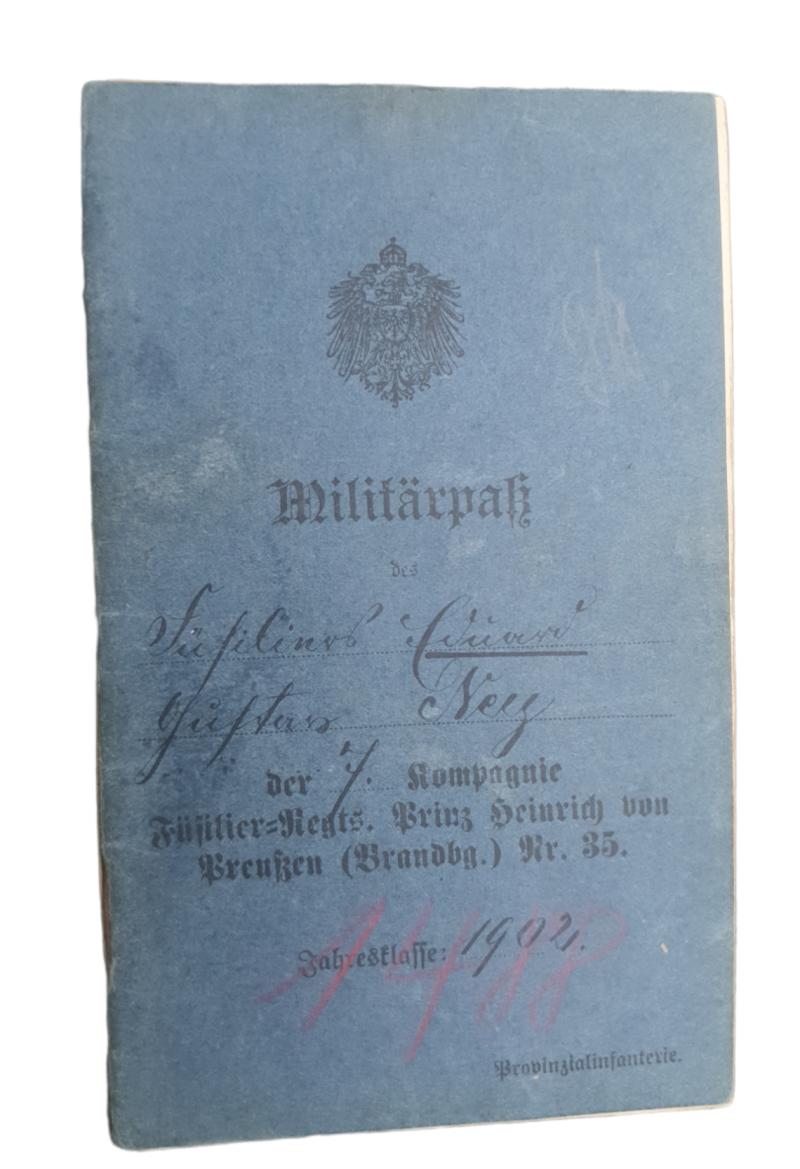 Militärpaß
des
Füsiliers Eduard
Gustav Ney
der 7. Kompagnie
Füsilier=Regts. Prinz Heinrich von
Preußen (Brandbg.) Nr. 35.
Jahresklasse: 1902.
1488
Provinzialinfanterie.